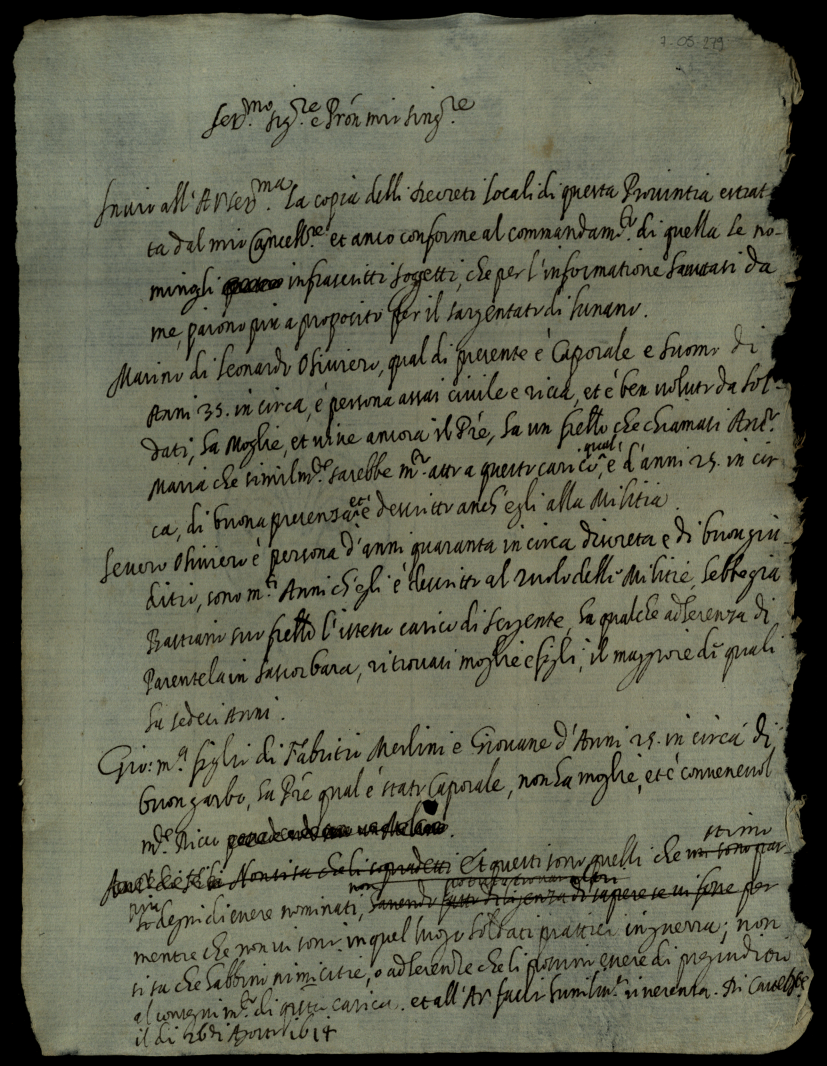 7-05-279
Ser.mo Sig.re e Prón mio Sing.re
Invio all'A V Ser.ma la copia delli decreti locali di questa Provintia estrat-
ta dal mio Cancell.re et anco conforme al commandam.to di quella le no-
mino gli infrascritti sogetti, che per l'informatione havutasi da
me, paiono più a proposito per il sargentato di Lunano.
Marino di Leonardo Oliviero, qual di presente è Caporale e huomo di
Anni 35. in circa, è persona assai civile e ricca, et è ben voluto da sol-
dati, ha moglie, et vive ancora il Pre, ha un fretto che chiamasi Ant.o
Maria che similm.te sarebbe m.to atto a questo carico, qual è d'anni 25. in cir
ca, di buona presenza, et è descritto anch'egli alla Militia.
Severo Oliviero è persona d'anni quaranta in circa discreta e di buon giu-
ditio, sono m.ti Anni ch'egli è descritto al ruolo delle Militie, hebbe già
Bastiano suo fretto l'istesso carico di sergente, ha qualche adherenza di
Parentela in Sassocorbara, ritrovasi moglie e figli, il maggiore di quali
ha sedeci Anni.
Gio: m.a figlio di Fabritio Merlini è Giovane d'Anni 25. in circa di
buon garbo, ha Pre qual è stato Caporale, non ha moglie, et è convenevol
m.te Ricco
Non si sa che li sopradetti Et questi sono quelli che stimo
più degni di essere nominati, non per
mentre che non vi sono in quel luogo soldati prattici in guerra; non
si sa che habbino nimicitie, o adherenze che li possino essere di pregiuditio
al conseguim.to di questo carico. et all'A V facci humiliss.a riverenza. Di
il dì 26 di Agosto 1614